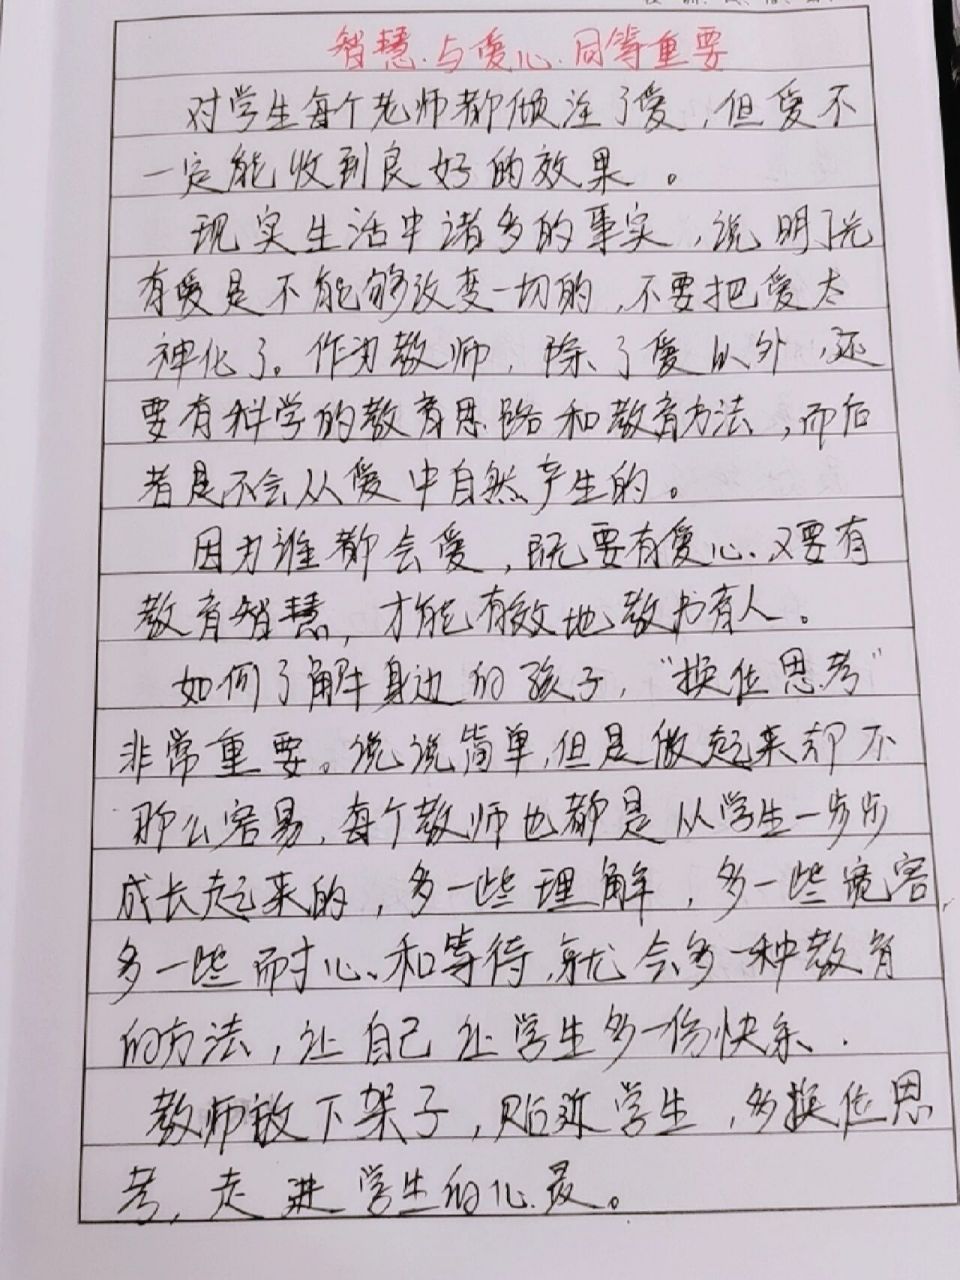 智慧.与爱心.同等重要
对学生每个老师都倾注了爱，但爱不
一定能收到良好的效果。
现实生活中诸多的事实，说明了光
有爱是不能够改变一切的，不要把爱太
神化了。作为教师，除了爱以外，还
要有科学的教育思路和教育方法，而后
者是不会从爱中自然产生的。
因为谁都会爱，既要有爱心、又要有
教育智慧，才能有效地教书育人。
如何了解身边的孩子，“换位思考”
非常重要。说说简单，但是做起来却不
那么容易，每个教师也都是从学生一步步
成长起来的，多一些理解，多一些宽容，
多一些耐心、和等待，就会多一种教育
的方法，让自己让学生多一份快乐.
教师放下架子，贴近学生，多换位思
考，走进学生的心灵。